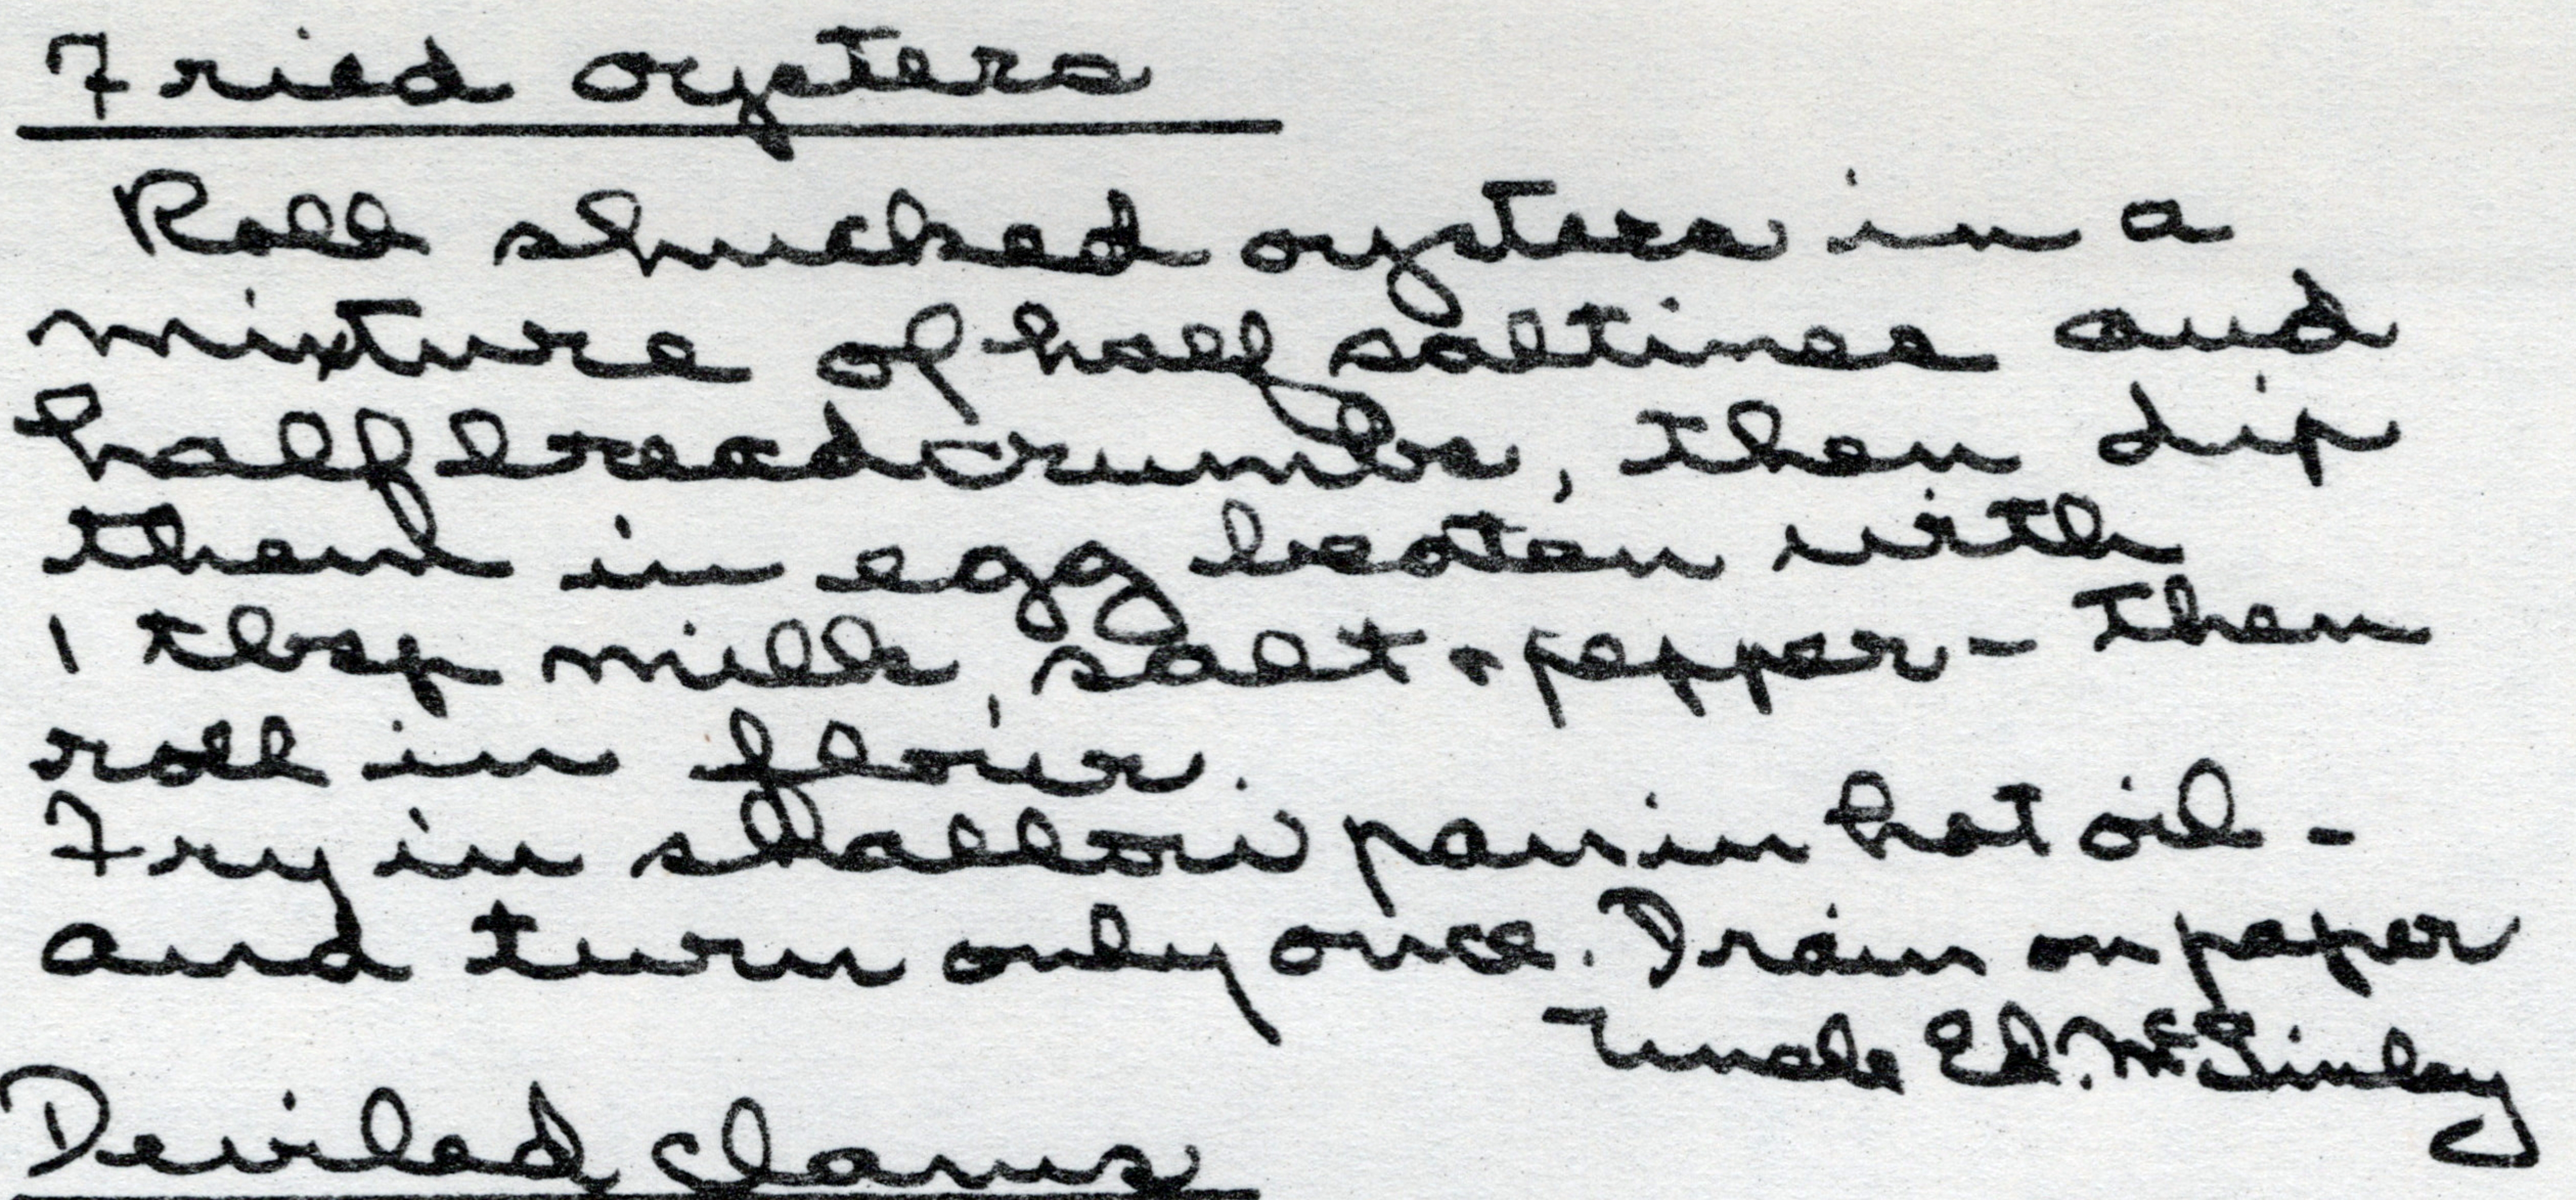 Fried oysters
Roll shucked oysters in a
mixture of half saltines and
half breadcrumbs, then dip
them in egg beaten with
1 tbsp milk, salt & pepper - then
roll in flour.
Fry in shallow pan in hot oil -
and turn only once. Drain on paper
Uncle Ed. McGinley
Deviled clams